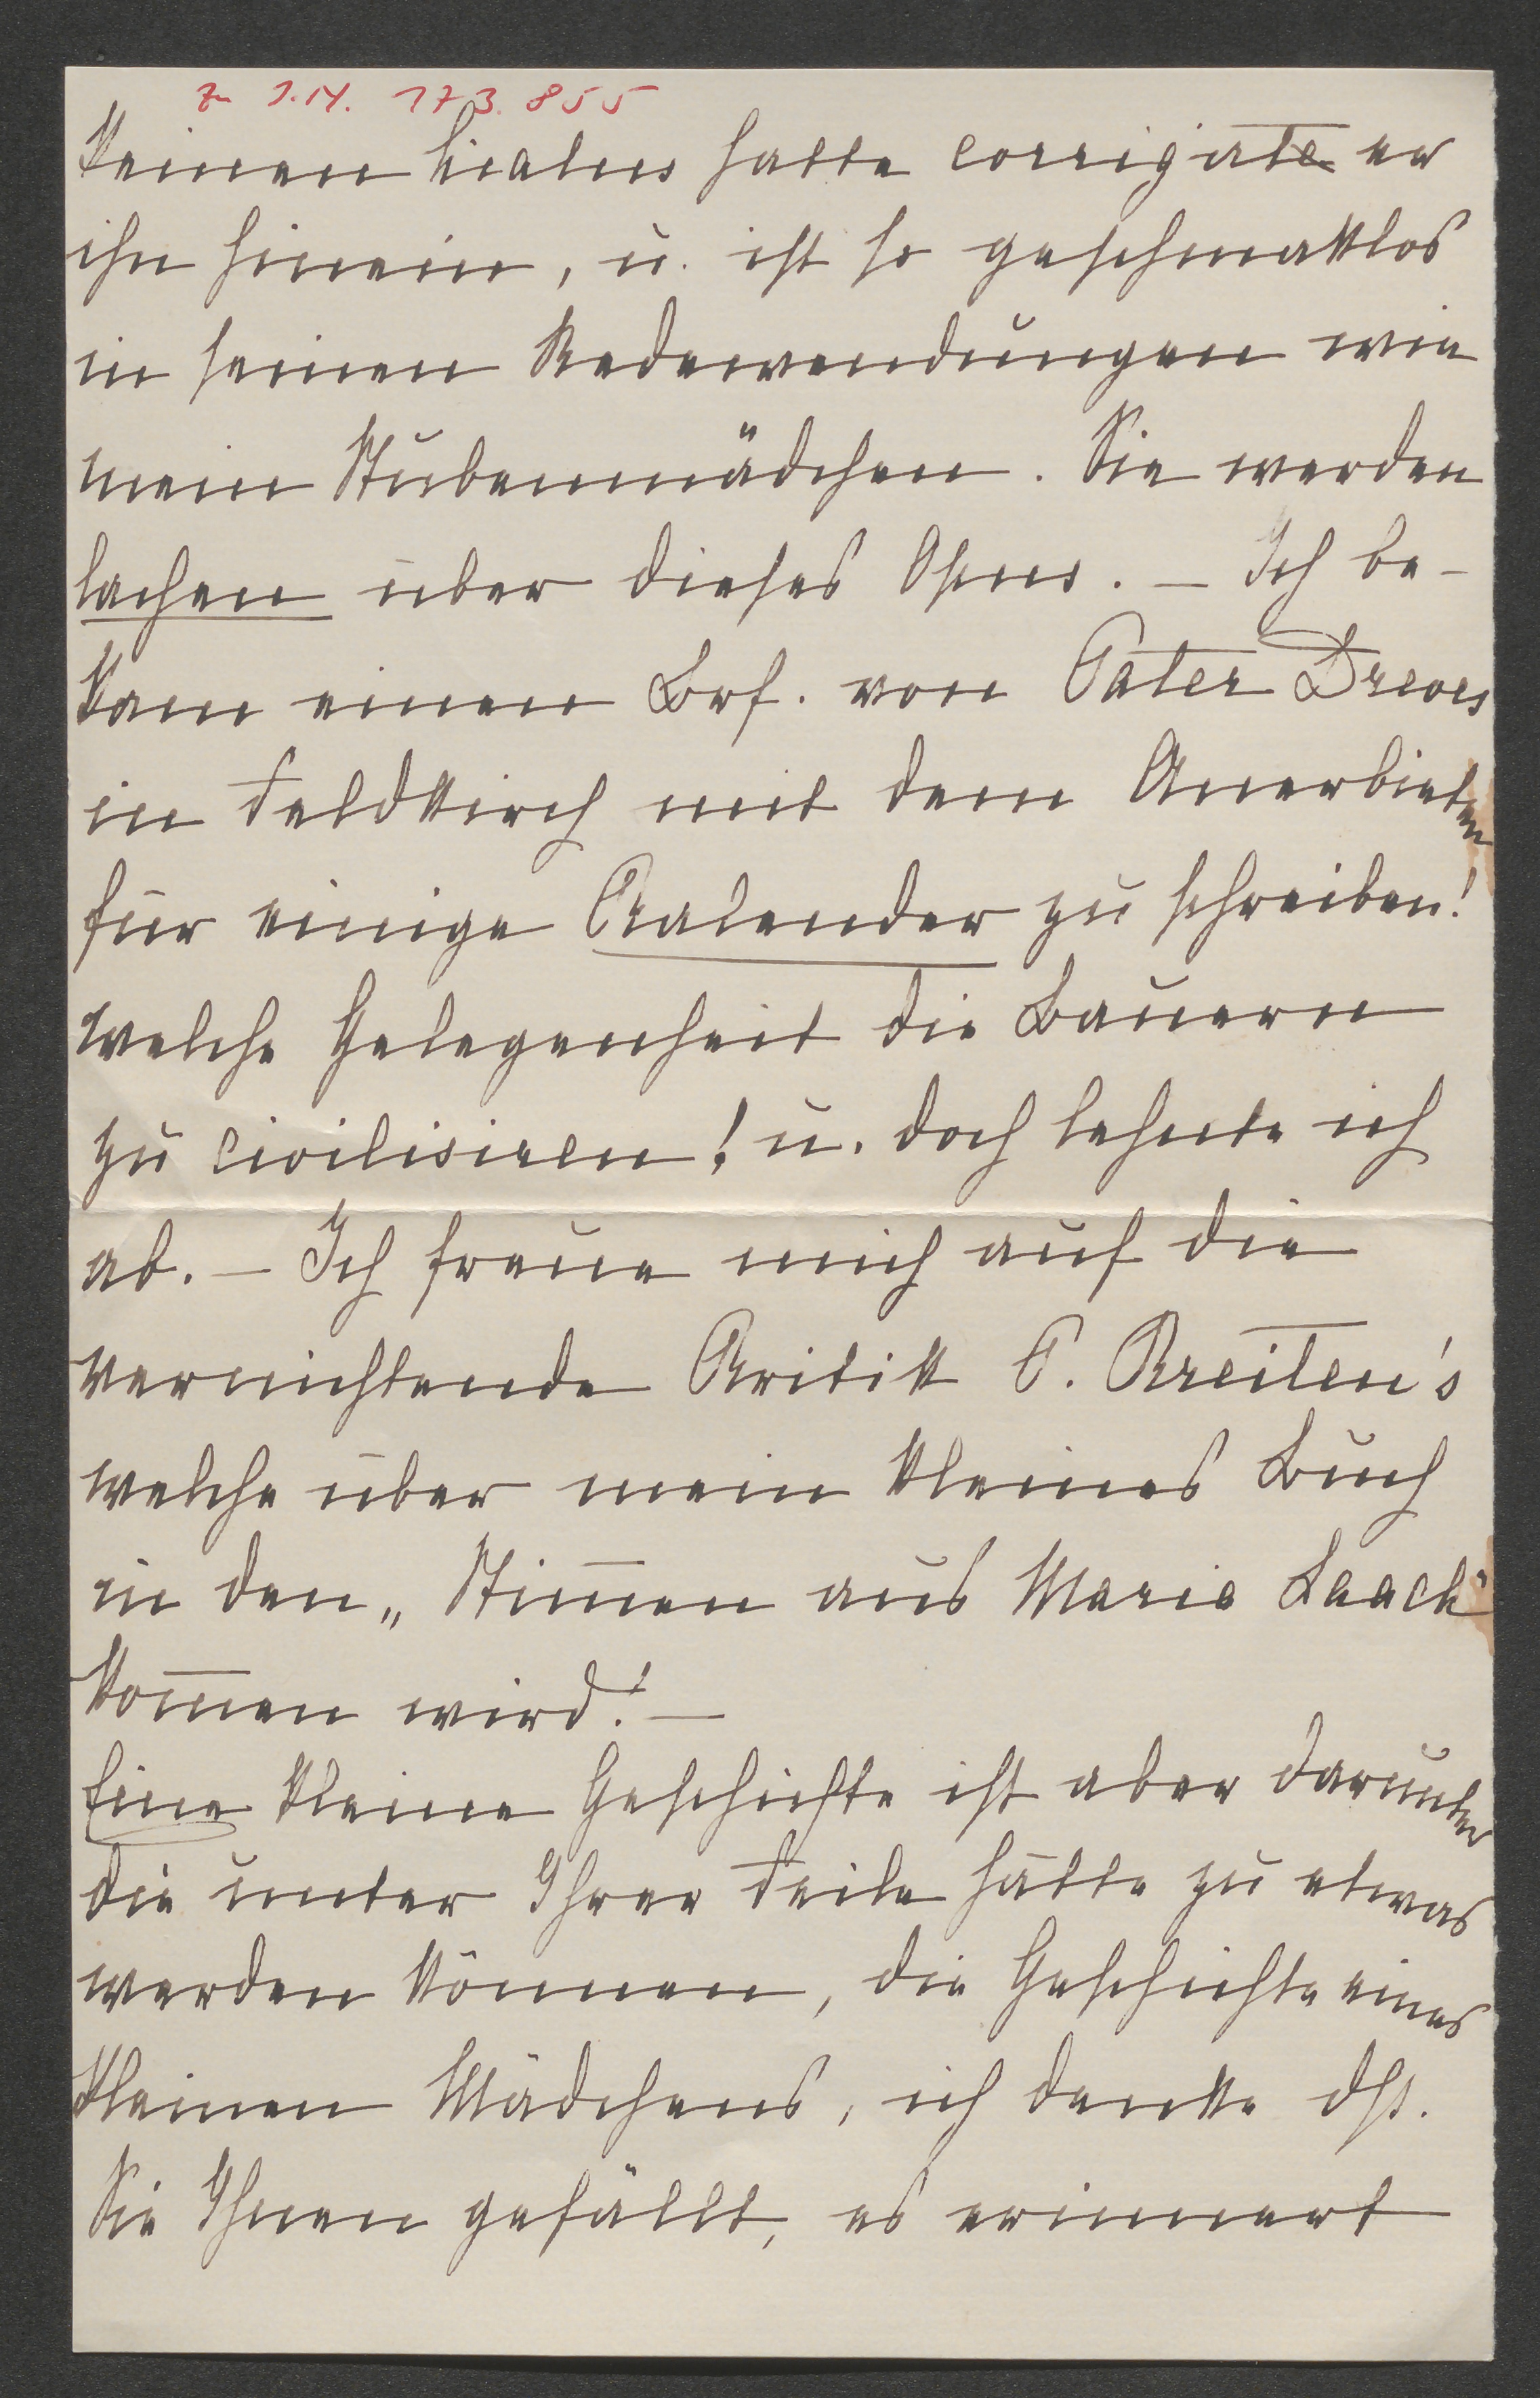 Zu I.N. 173.855
keinen Cialus hatte corrigirte er
ihn hinein, u. ist so geschmaklos
in seinen Redewendungen wie
mein Stubenmädchen. Sie werden
lachen über dieses Opus. – Ich be-
kam einen Brf. von Pater Dreves
in Feldkirch mit dem Anerbieten
für einige Kalender zu schreiben!
welche Gelegenheit die Bauern
zu civilisiren! u. doch lehnte ich
ab. – Ich freue mich auf die
vernichtende Kritik P. Kreiten's
welche über mein kleines Buch
in den „Stim̅en aus Maria Laach"
kom̅en wird! –
Eine kleine Geschichte ist aber darunter
die unter Ihrer Feile hätte zu etwas
werden können, die Geschichte eines
kleinen Mädchens, ich denke dß.
Sie Ihnen gefällt, es erinnert